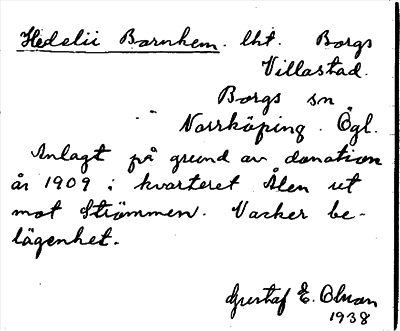 Hedelii Barnhem. lht. Borgs
Villastad.
Borgs sn
Norrköping. Ögl.
Anlagt på grund av donation
år 1909 i kvarteret Ålen ut
mot Strömmen. Vacker be-
lägenhet.
Gustaf E. Olson
1938